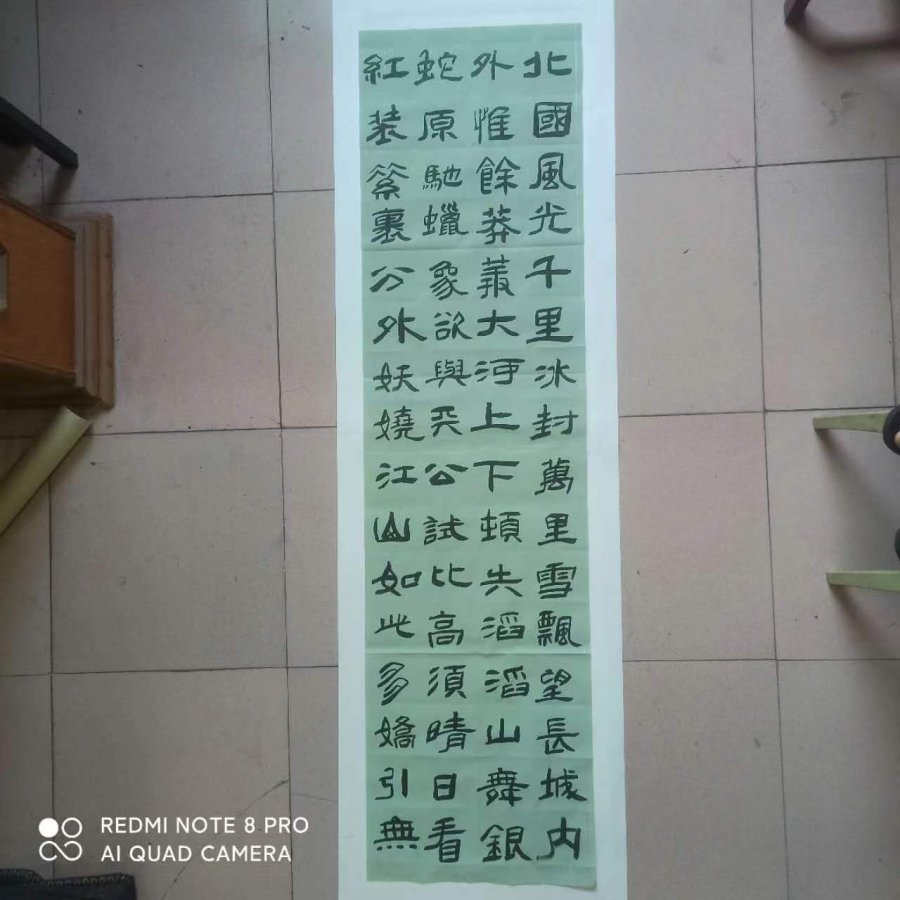 北國風光千里冰封萬里雪飄望長城内
外惟餘莽大河上下頓失滔滔山舞銀
蛇原馳蠟象欲與天公試比高須晴日看
紅装素裹分外妖嬈江山如此多嬌引無
REDMI NOTE 8 PRO
AI QUAD CAMERA